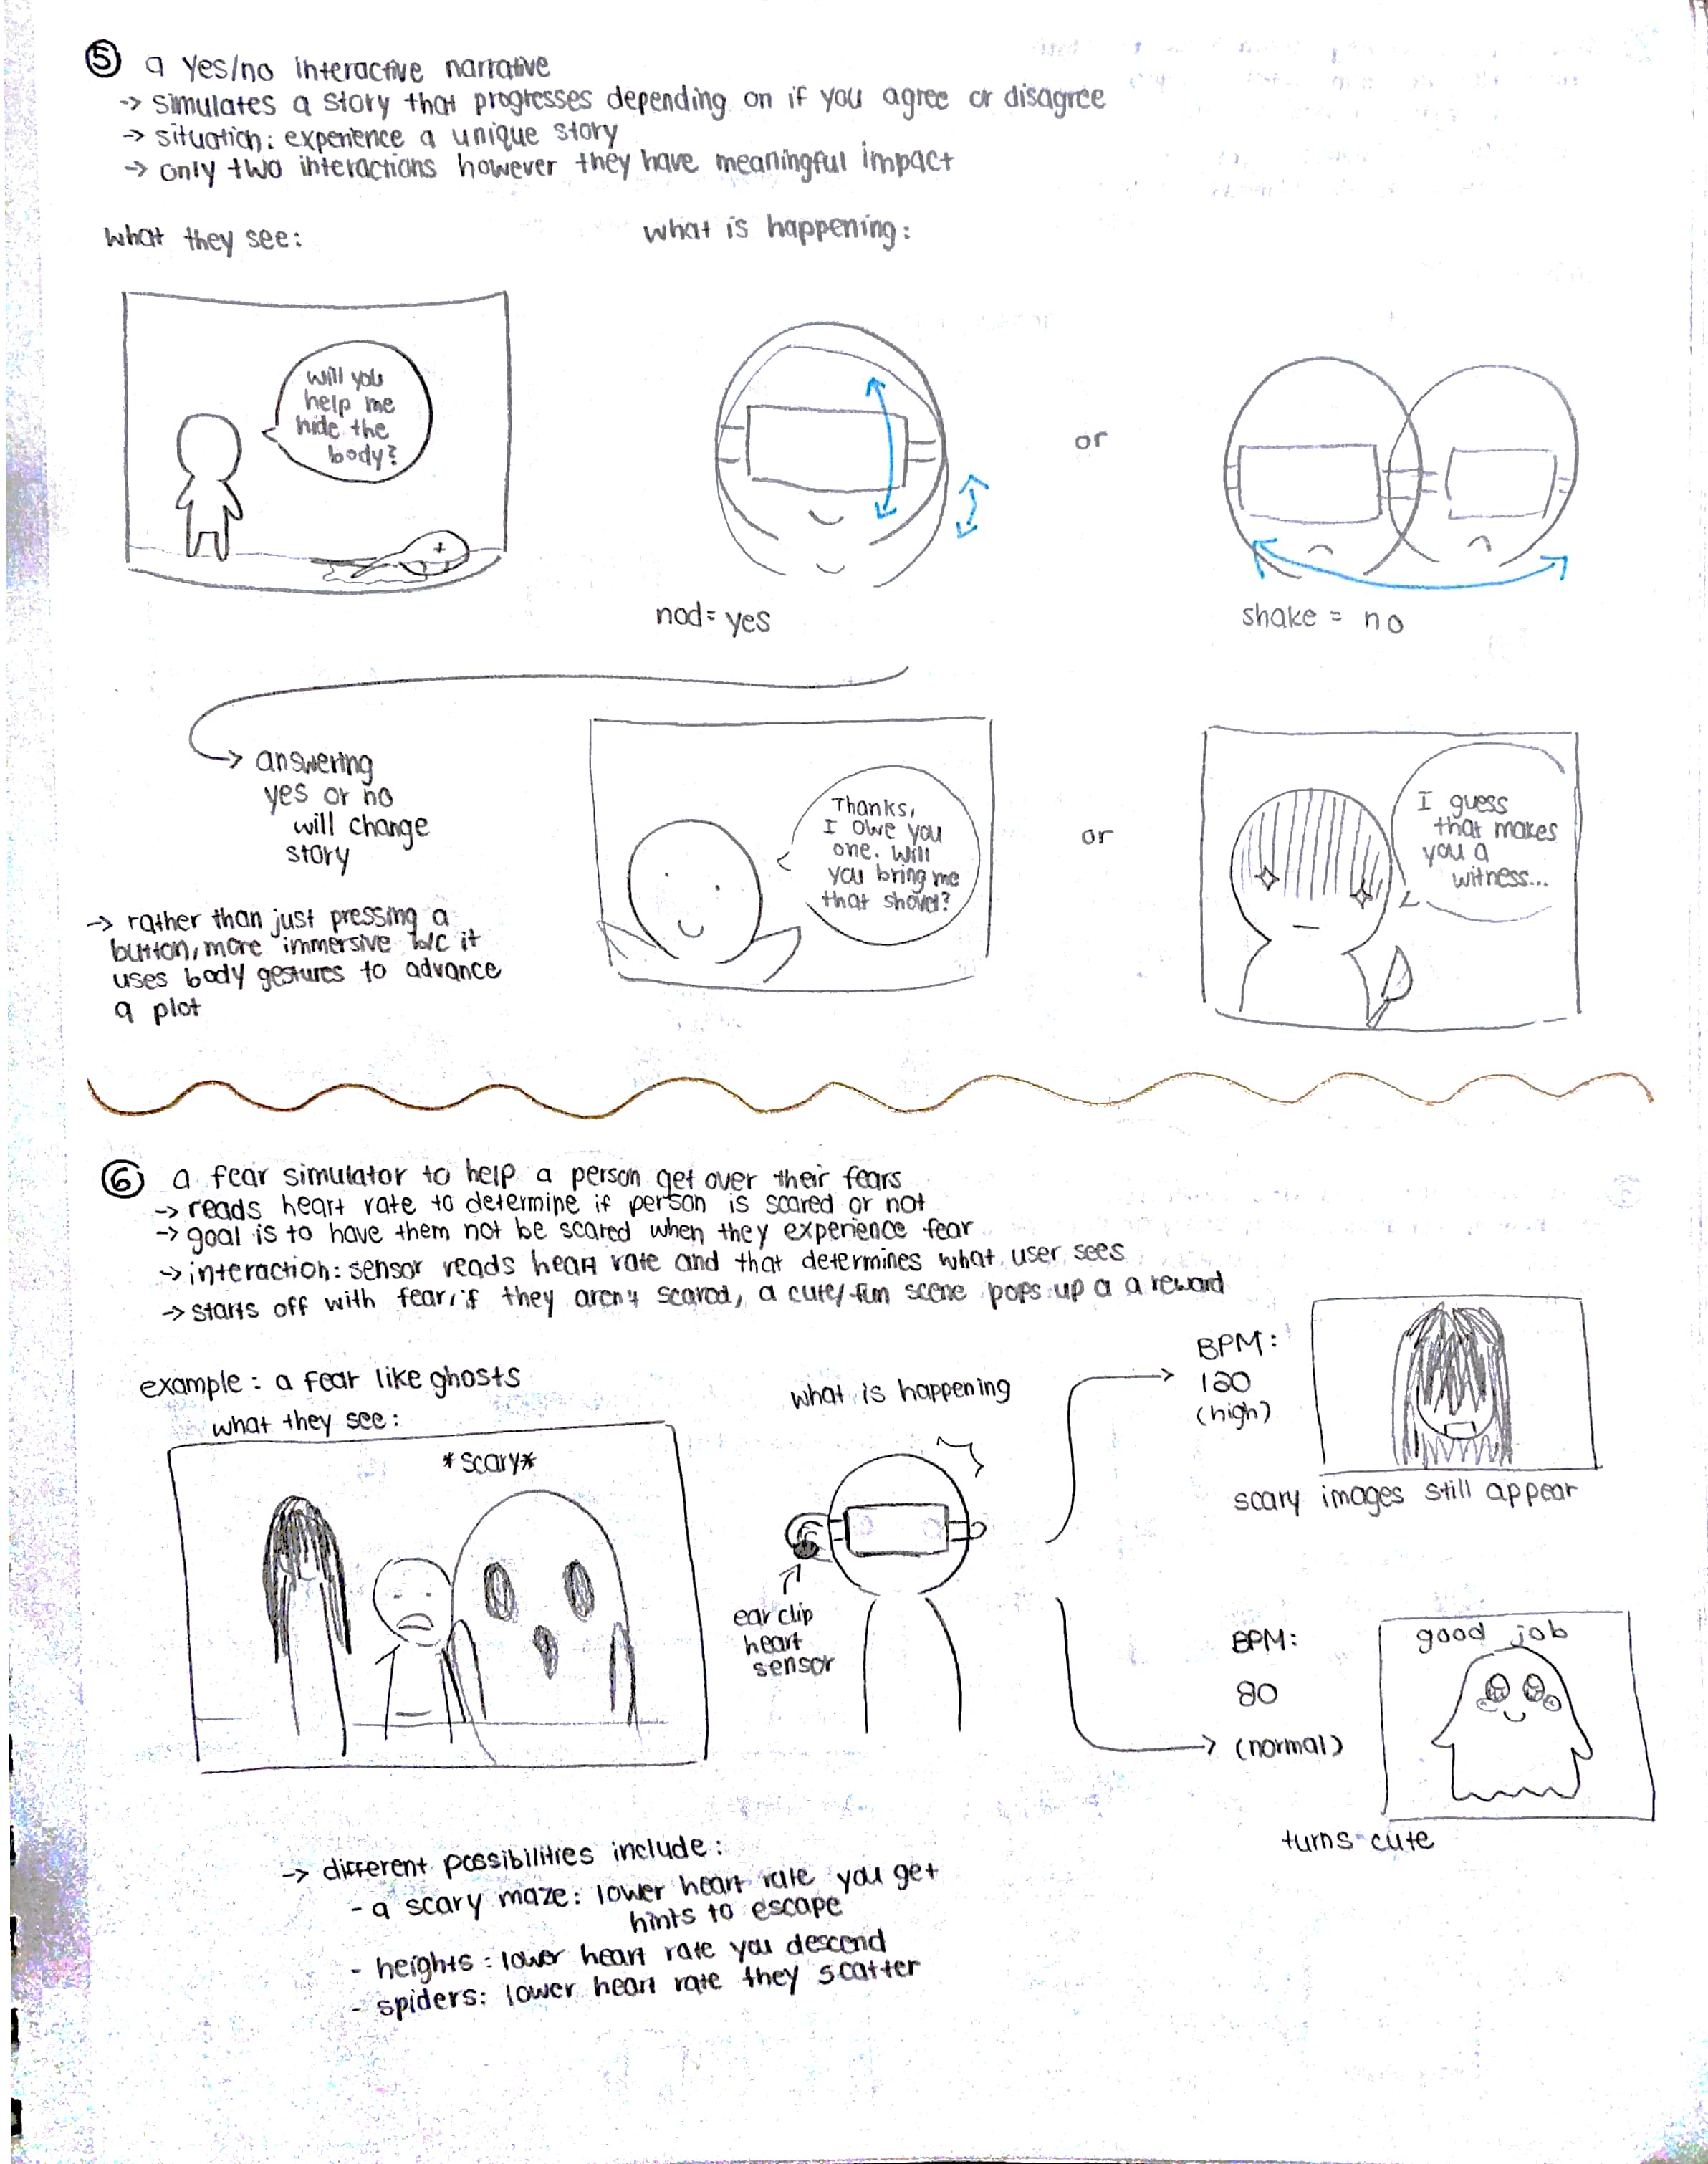 ⑤ a yes/no interactive narrative
-> simulates a story that progresses depending on if you agree or disagree
-> situation: experience a unique story
-> only two interactions however they have meaningful impact
what they see:
what is happening:
will you
help me
hide the
body?
or
nod = yes
shake = no
-> answering
yes or no
will change
story
Thanks,
I owe you
one. Will
you bring me
that shovel?
or
I guess
that makes
you a
witness...
-> rather than just pressing a
button, more immersive b/c it
uses body gestures to advance
a plot
⑥ a fear simulator to help a person get over their fears
-> reads heart rate to determine if person is scared or not
-> goal is to have them not be scared when they experience fear
-> interaction: sensor reads heart rate and that determines what user sees
-> starts off with fear, if they aren't scared, a cute/fun scene pops up a a reward
example: a fear like ghosts
what they see:
*scary*
what is happening
ear clip
heart
sensor
BPM:
120
(high)
scary images still appear
BPM:
80
(normal)
good job
turns cute
-> different possibilities include:
- a scary maze: lower heart rate you get
hints to escape
- heights: lower heart rate you descend
- spiders: lower heart rate they scatter